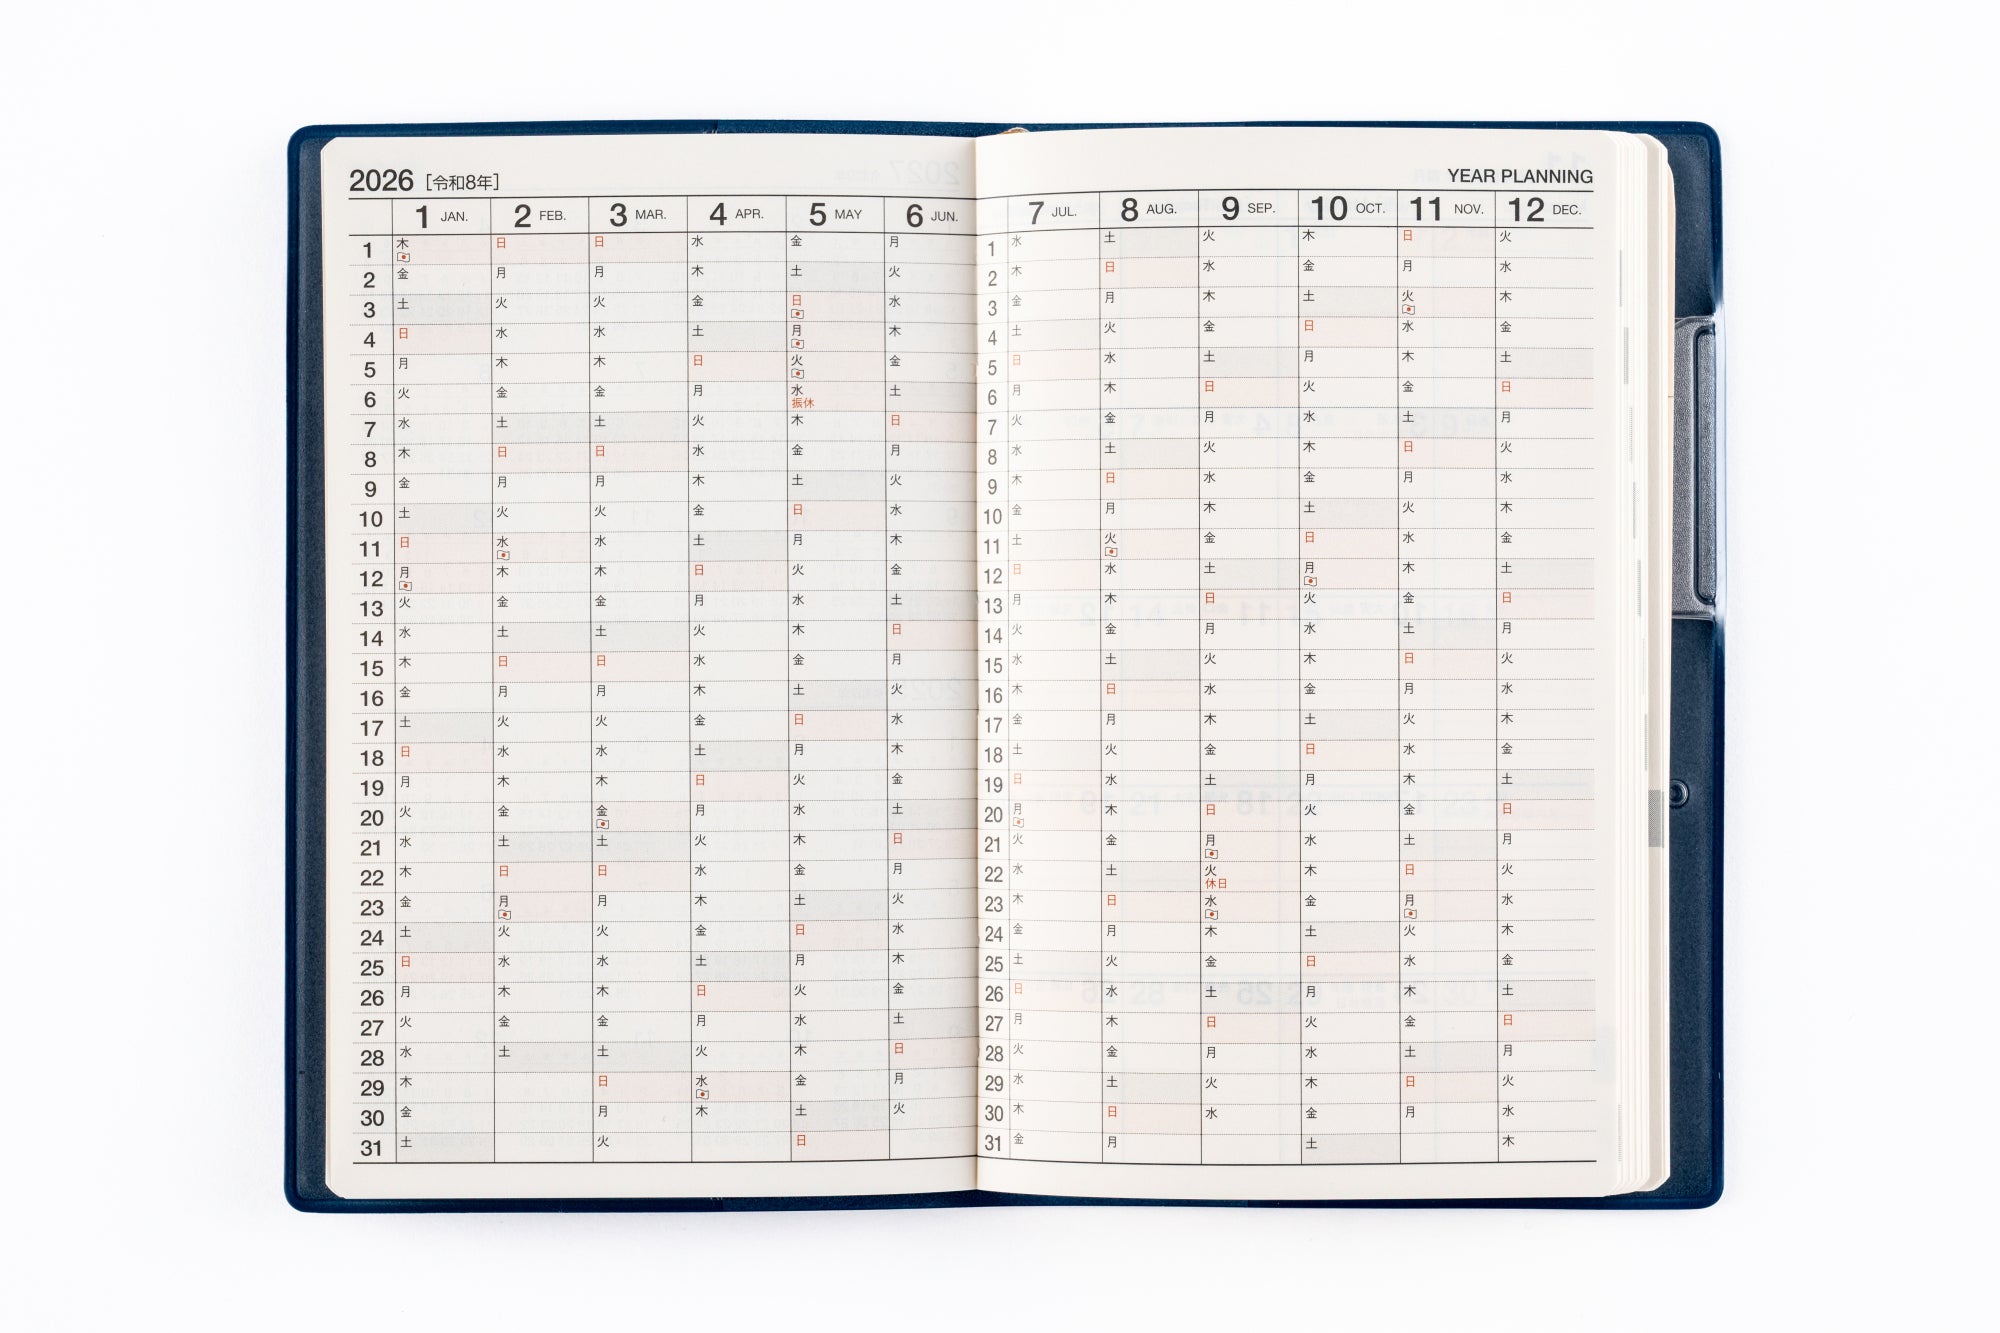 2026 [令和8年]
YEAR PLANNING
1 JAN. 2 FEB. 3 MAR. 4 APR. 5 MAY 6 JUN. 7 JUL. 8 AUG. 9 SEP. 10 OCT. 11 NOV. 12 DEC.
1 木 日 日 水 金 月 1 水 土 火 木 日 火
2 金 月 月 木 土 火 2 木 日 水 金 月 水
3 土 火 火 金 日 水 3 金 月 木 土 火 木
4 日 水 水 土 月 木 4 土 火 金 日 水 金
5 月 木 木 日 火 金 5 日 水 土 月 木 土
6 火 金 金 月 水 振休 土 6 月 木 日 火 金 日
7 水 土 土 火 木 日 7 火 金 月 水 土 月
8 木 日 日 水 金 月 8 水 土 火 木 日 火
9 金 月 月 木 土 火 9 木 日 水 金 月 水
10 土 火 火 金 日 水 10 金 月 木 土 火 木
11 日 水 水 土 月 木 11 土 火 金 日 水 金
12 月 木 木 日 火 金 12 日 水 土 月 木 土
13 火 金 金 月 水 土 13 月 木 日 火 金 日
14 水 土 土 火 木 日 14 火 金 月 水 土 月
15 木 日 日 水 金 月 15 水 土 火 木 日 火
16 金 月 月 木 土 火 16 木 日 水 金 月 水
17 土 火 火 金 日 水 17 金 月 木 土 火 木
18 日 水 水 土 月 木 18 土 火 金 日 水 金
19 月 木 木 日 火 金 19 日 水 土 月 木 土
20 火 金 金 月 水 土 20 月 木 日 火 金 日
21 水 土 土 火 木 日 21 火 金 月 水 土 月
22 木 日 日 水 金 月 22 水 土 火 休日 木 日 火
23 金 月 月 木 土 火 23 木 日 水 金 月 水
24 土 火 火 金 日 水 24 金 月 木 土 火 木
25 日 水 水 土 月 木 25 土 火 金 日 水 金
26 月 木 木 日 火 金 26 日 水 土 月 木 土
27 火 金 金 月 水 土 27 月 木 日 火 金 日
28 水 土 土 火 木 日 28 火 金 月 水 土 月
29 木 日 水 金 月 29 水 土 火 木 日 火
30 金 月 木 土 火 30 木 日 水 金 月 水
31 土 火 日 31 金 月 土 木